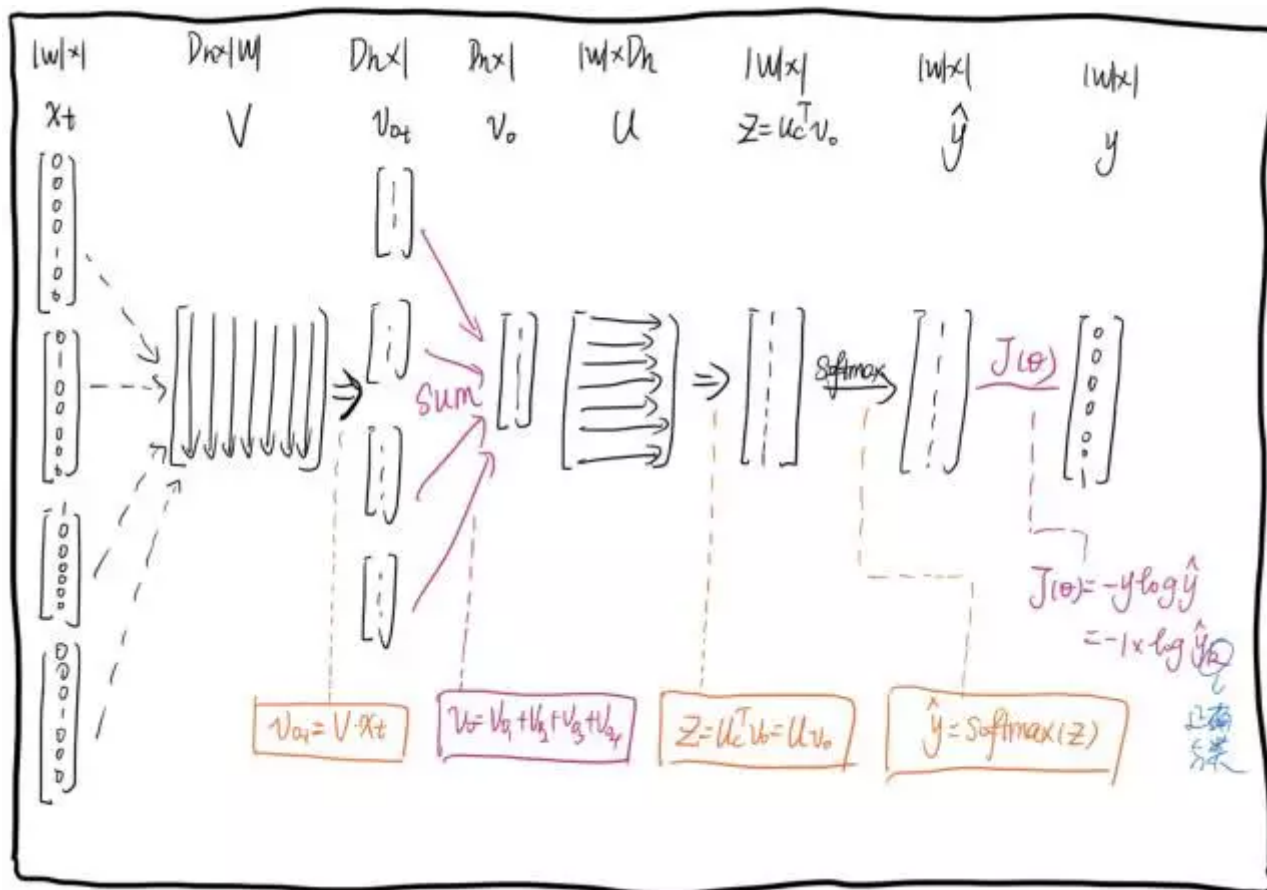 |W|×1 Dh×|W| Dh×1 Dh×1 |W|×Dh |W|×1 |W|×1 |W|×1
xt V v₀t v₀ U Z=Uc^T v₀ ŷ y
[0 0 0 0 1 0 0]
[0 1 0 0 0 0 0]
[1 0 0 0 0 0 0]
[0 0 0 1 0 0 0]
sum
softmax
J(θ)
[0 0 0 0 0 0 1]
J(θ)=-y log ŷ
=-1× log ŷk
正确
分类
v₀t=V·xt
v₀=v₀1+v₀2+v₀3+v₀4
Z=Uc^T v₀=U v₀
ŷ=softmax(Z)